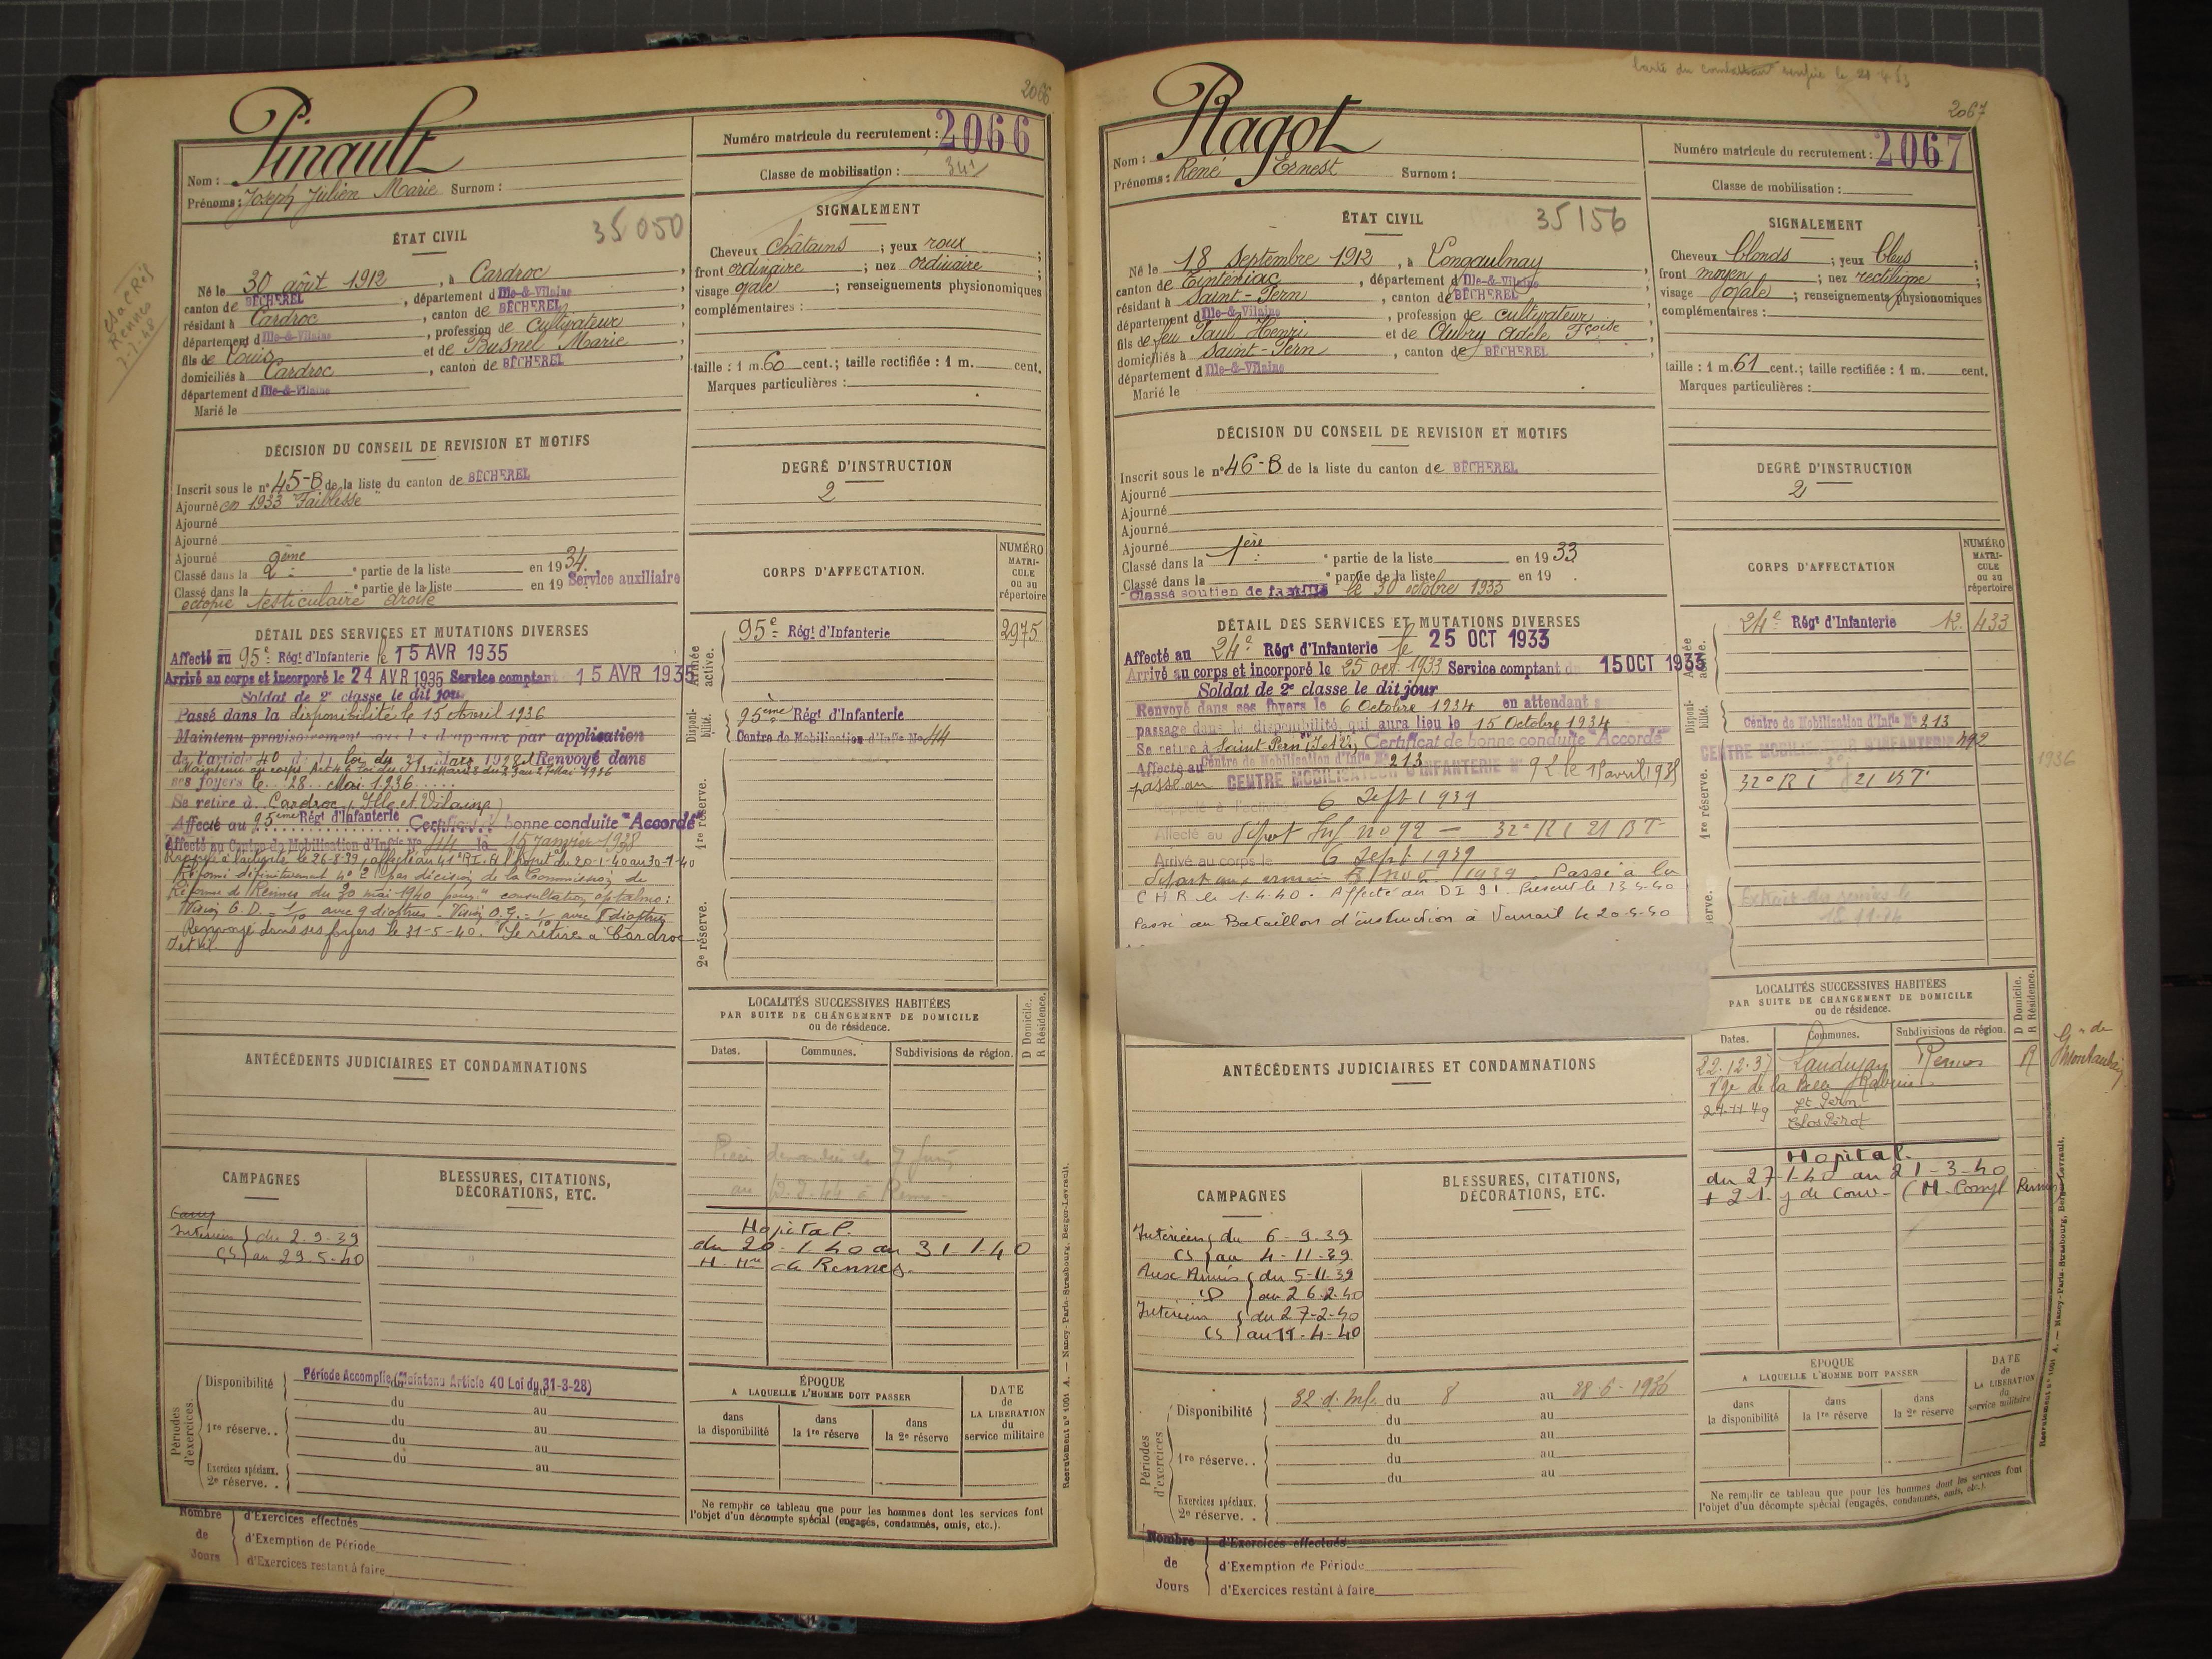 2066
Pinault
Nom :
Prénoms : Joseph Julien Marie Surnom :
Numéro matricule du recrutement : 2066
Classe de mobilisation : 341
ÉTAT CIVIL
35050
Né le 30 août 1912, à Cardroc,
canton de BÉCHEREL, département d Ille-&-Vilaine
résidant à Cardroc, canton de BÉCHEREL,
département d Ille-&-Vilaine, profession de cultivateur
fils de Louis et de Busnel Marie
domiciliés à Cardroc, canton de BÉCHEREL,
département d Ille-&-Vilaine
Marié le
SIGNALEMENT
Cheveux châtains ; yeux roux ;
front ordinaire ; nez ordinaire ;
visage ovale ; renseignements physionomiques
complémentaires :
taille : 1 m. 60 cent.; taille rectifiée : 1 m. cent.
Marques particulières :
Rennes
7-7-48
DÉCISION DU CONSEIL DE REVISION ET MOTIFS
Inscrit sous le n° 45-B de la liste du canton de BÉCHEREL
Ajourné en 1933 Faiblesse
Ajourné
Ajourné
Ajourné
Classé dans la 2ème partie de la liste en 1934.
Classé dans la partie de la liste en 19 Service auxiliaire
ectopie testiculaire droite
DEGRÉ D'INSTRUCTION
2
CORPS D'AFFECTATION.
NUMÉRO
MATRI-
CULE
ou au
répertoire
Armée active.
95e Régt d'Infanterie 2975
Disponibilité.
95ème Régt d'Infanterie
Centre de Mobilisation d'Infie No 44
1re réserve.
2e réserve.
DÉTAIL DES SERVICES ET MUTATIONS DIVERSES
Affecté au 95e Régt d'Infanterie le 15 AVR 1935
Arrivé au corps et incorporé le 24 AVR 1935 Service comptant 15 AVR 1935
Soldat de 2e classe le dit jour
Passé dans la disponibilité le 15 Avril 1936
Maintenu provisoirement sous les drapeaux par application
de l'article 40 de la loi du 31 Mars 1928. Renvoyé dans
ses foyers le 28 Mai 1936
Se retire à Cardroc (Ille et Vilaine)
Affecté au 95ème Régt d'Infanterie Certificat de bonne conduite "Accordé"
Affecté au Centre de Mobilisation d'Infie No 44 le 15 janvier 1938
Rappelé à l'activité le 26-8-39, affecté au 41e RI. A l'hôpital du 20-1-40 au 30-1-40
Réformé définitivement n° 2 par décision de la Commission de
Réforme de Rennes du 20 mai 1940 pour "consultation optalmo :
Vision O. D. = 1/10 avec 9 dioptries - Vision O.G. = 1/10 avec 8 dioptries
Renvoyé dans ses foyers le 31-5-40. Se retire à Cardroc
I et V.
LOCALITÉS SUCCESSIVES HABITÉES
PAR SUITE DE CHANGEMENT DE DOMICILE
ou de résidence.
D Domicile.
R Résidence.
Dates. Communes. Subdivisions de région.
Hopital.
du 20-1-40 au 31-1-40
H. Mre de Rennes.
ANTÉCÉDENTS JUDICIAIRES ET CONDAMNATIONS
CAMPAGNES
BLESSURES, CITATIONS,
DÉCORATIONS, ETC.
Camp
Intérieur } du 2-9-39
CS } au 29-5-40
Périodes d'exercices.
Disponibilité Période Accomplie (Maintenu Article 40 Loi du 31-3-28)
du au
1re réserve..
du au
du au
du au
Exercices spéciaux.
2e réserve..
ÉPOQUE
A LAQUELLE L'HOMME DOIT PASSER
dans la disponibilité
dans la 1re réserve
dans la 2e réserve
DATE
de
LA LIBERATION
du
service militaire
Ne remplir ce tableau que pour les hommes dont les services font
l'objet d'un décompte spécial (engagés, condamnés, omis, etc.).
Nombre de Jours
d'Exercices effectués
d'Exemption de Période
d'Exercices restant à faire
Recrutement n° 1051 A. — Nancy-Paris-Strasbourg, Berger-Levrault.
Carte du combattant
2067
Ragot
Nom :
Prénoms : René Ernest Surnom :
Numéro matricule du recrutement : 2067
Classe de mobilisation :
ÉTAT CIVIL
35156
Né le 18 Septembre 1912, à Longaulnay
canton de Tinténiac, département d Ille-&-Vilaine
résidant à Saint-Pern, canton de BÉCHEREL
département d Ille-&-Vilaine, profession de cultivateur
fils de feu Paul Henri et de Aubry Adèle Fçoise
domiciliés à Saint-Pern, canton de BÉCHEREL
département d Ille-&-Vilaine
Marié le
SIGNALEMENT
Cheveux blonds ; yeux bleus ;
front moyen ; nez rectiligne ;
visage ovale ; renseignements physionomiques
complémentaires :
taille : 1 m. 61 cent.; taille rectifiée : 1 m. cent.
Marques particulières :
DÉCISION DU CONSEIL DE REVISION ET MOTIFS
Inscrit sous le n° 46-B de la liste du canton de BÉCHEREL
Ajourné
Ajourné
Ajourné
Ajourné
Classé dans la 1ère partie de la liste en 1933
Classé dans la partie de la liste en 19 .
Classé soutien de famille le 30 octobre 1933
DEGRÉ D'INSTRUCTION
2
CORPS D'AFFECTATION
NUMÉRO
MATRI-
CULE
ou au
répertoire
24e Régt d'Infanterie 12.433
Centre de Mobilisation d'Infie No 213
CENTRE MOBILISATEUR D'INFANTERIE N° 92
32e R I 21 BT
1936
DÉTAIL DES SERVICES ET MUTATIONS DIVERSES
Affecté au 24e Régt d'Infanterie le 25 OCT 1933
Arrivé au corps et incorporé le 25 oct. 1933 Service comptant du 15 OCT 1933
Soldat de 2e classe le dit jour
Renvoyé dans ses foyers le 6 Octobre 1934 en attendant
passage dans la disponibilité qui aura lieu le 15 Octobre 1934
Se retire à Saint Pern (I et V) Certificat de bonne conduite "Accordé"
Affecté au Centre de Mobilisation d'Infie No 213
passé au CENTRE MOBILISATEUR D'INFANTERIE N° 92 le 15 avril 1935
Rappelé à l'activité 6 Sept 1939
Affecté au dépot Inf no 92 — 32e R I 21 BT
Arrivé au corps le 6 Sept 1939
Départ aux armées 5 nov 1939 - Passé à la
C H R le 1.4.40. Affecté au D I 91. Présent le 13.4.40
Passé au Bataillon d'instruction à le 20-5-40
LOCALITÉS SUCCESSIVES HABITÉES
PAR SUITE DE CHANGEMENT DE DOMICILE
ou de résidence.
D Domicile.
R Résidence.
Dates. Communes. Subdivisions de région.
22.12.37 Landujan Rennes R
27-11-49 St Pern
Clos Pérot
Hopital.
du 27-1-40 au 21-3-40
+ 21 j de conv- (H. Compl Rennes
ANTÉCÉDENTS JUDICIAIRES ET CONDAMNATIONS
CAMPAGNES
BLESSURES, CITATIONS,
DÉCORATIONS, ETC.
Intérieur { du 6-9-39
CS } au 4-11-39
Aux Armées { du 5-11-39
CD } au 26.2-40
Intérieur { du 27-2-40
CS } au 11-4-40
Périodes d'exercices
Disponibilité 32 d. Inf. du 8 au 28-6-1936
du au
1re réserve..
du au
du au
du au
Exercices spéciaux.
2e réserve..
ÉPOQUE
A LAQUELLE L'HOMME DOIT PASSER
dans la disponibilité
dans la 1re réserve
dans la 2e réserve
DATE
de
LA LIBERATION
du
service militaire
Ne remplir ce tableau que pour les hommes dont les services font
l'objet d'un décompte spécial (engagés, condamnés, omis, etc.).
Nombre de Jours
d'Exercices effectués
d'Exemption de Période
d'Exercices restant à faire
Recrutement n° 1051 A. — Nancy-Paris-Strasbourg, Berger-Levrault.